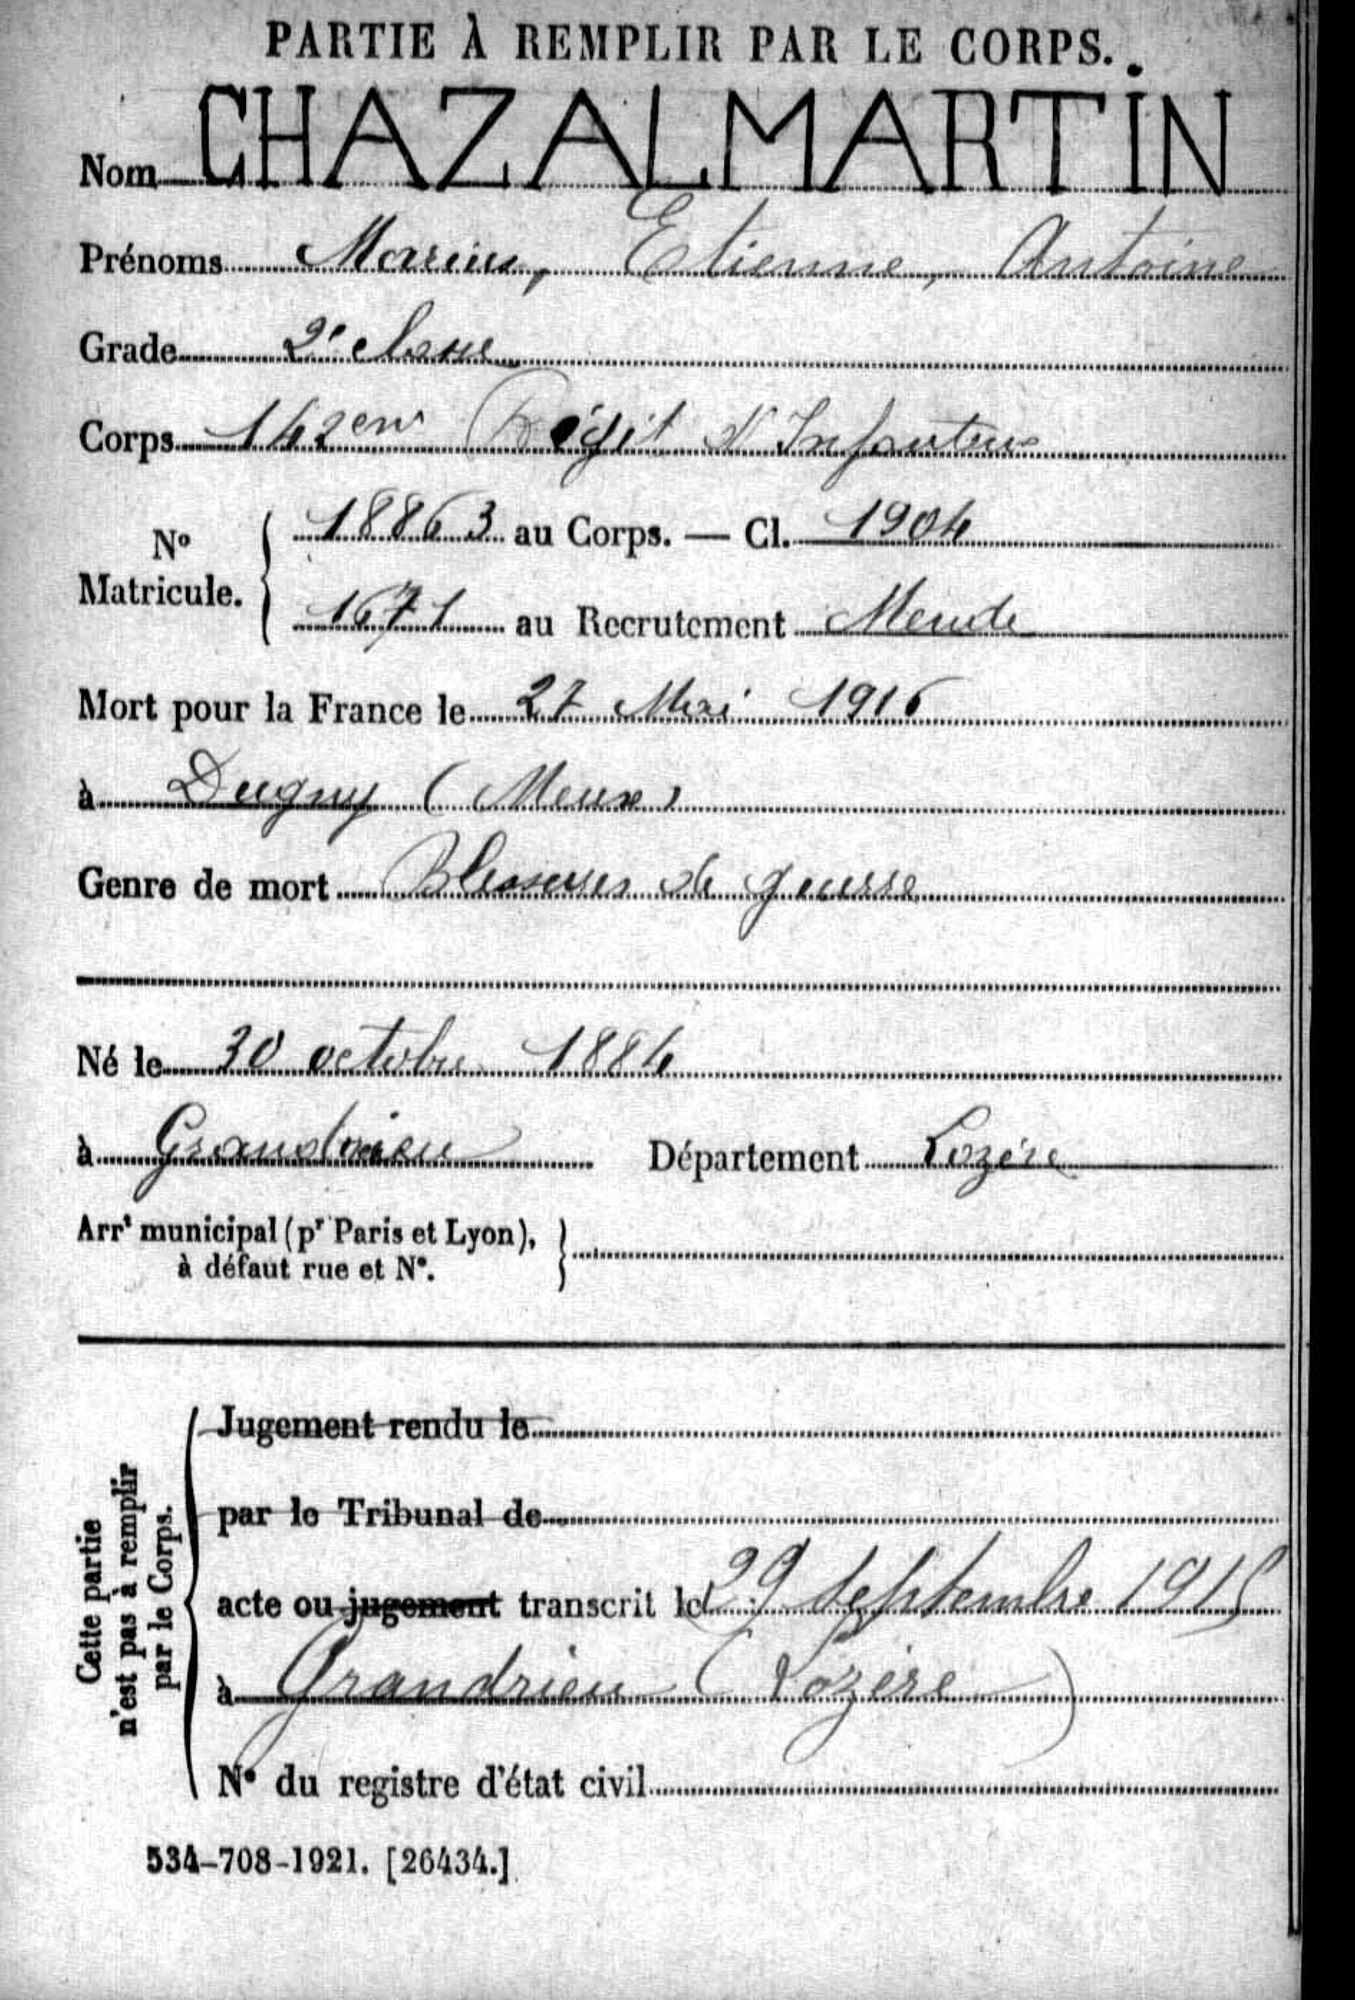 PARTIE À REMPLIR PAR LE CORPS.
Nom CHAZALMARTIN
Prénoms Marius, Etienne, Antoine
Grade 2e classe
Corps 142em Régit d'Infanterie
No Matricule. 18863 au Corps. — Cl. 1904
1671 au Recrutement Mende
Mort pour la France le 27 Mai 1916
à Dugny (Meuse)
Genre de mort Blessures de guerre
Né le 30 octobre 1884
à Grandrieu Département Lozère
Arrt municipal (pr Paris et Lyon),
à défaut rue et No.
Cette partie
n'est pas à remplir
par le Corps.
Jugement rendu le
par le Tribunal de
acte ou jugement transcrit le 29 septembre 1915
à Grandrieu (Lozère)
No du registre d'état civil
534-708-1921. [26434.]